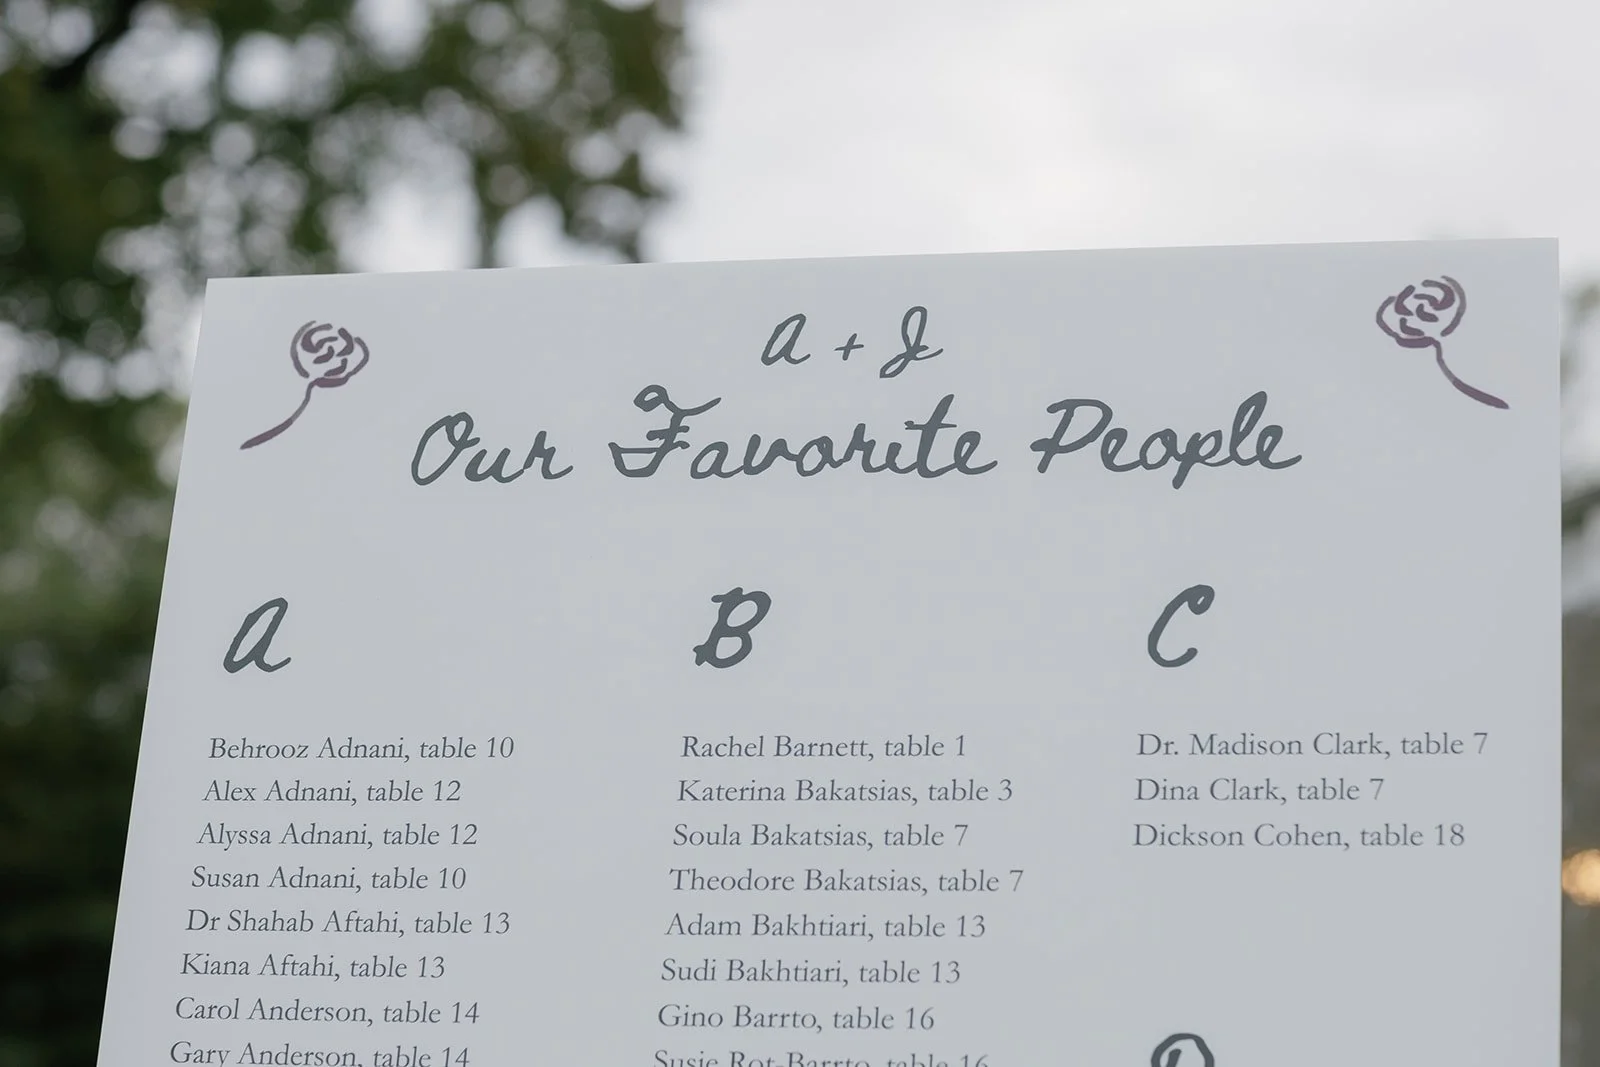 A + J
Our Favorite People
A
Behrooz Adnani, table 10
Alex Adnani, table 12
Alyssa Adnani, table 12
Susan Adnani, table 10
Dr Shahab Aftahi, table 13
Kiana Aftahi, table 13
Carol Anderson, table 14
Gary Anderson, table 14
B
Rachel Barnett, table 1
Katerina Bakatsias, table 3
Soula Bakatsias, table 7
Theodore Bakatsias, table 7
Adam Bakhtiari, table 13
Sudi Bakhtiari, table 13
Gino Barrto, table 16
Susie Rot-Barrto, table 16
C
Dr. Madison Clark, table 7
Dina Clark, table 7
Dickson Cohen, table 18
D